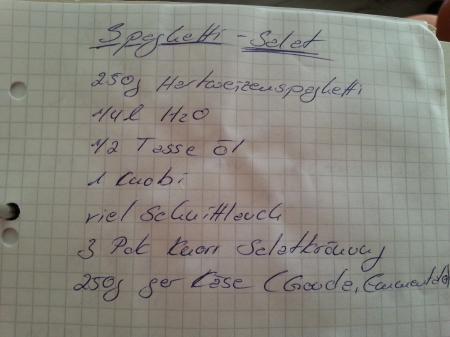 Spaghetti-Salat
250g Hartweizenspaghetti
1/4l H2O
1/2 Tasse Öl
1 Knobi
viel Schnittlauch
3 Pck Knorr Salatkrönung
250g ger Käse (Gouda, Emmentaler)